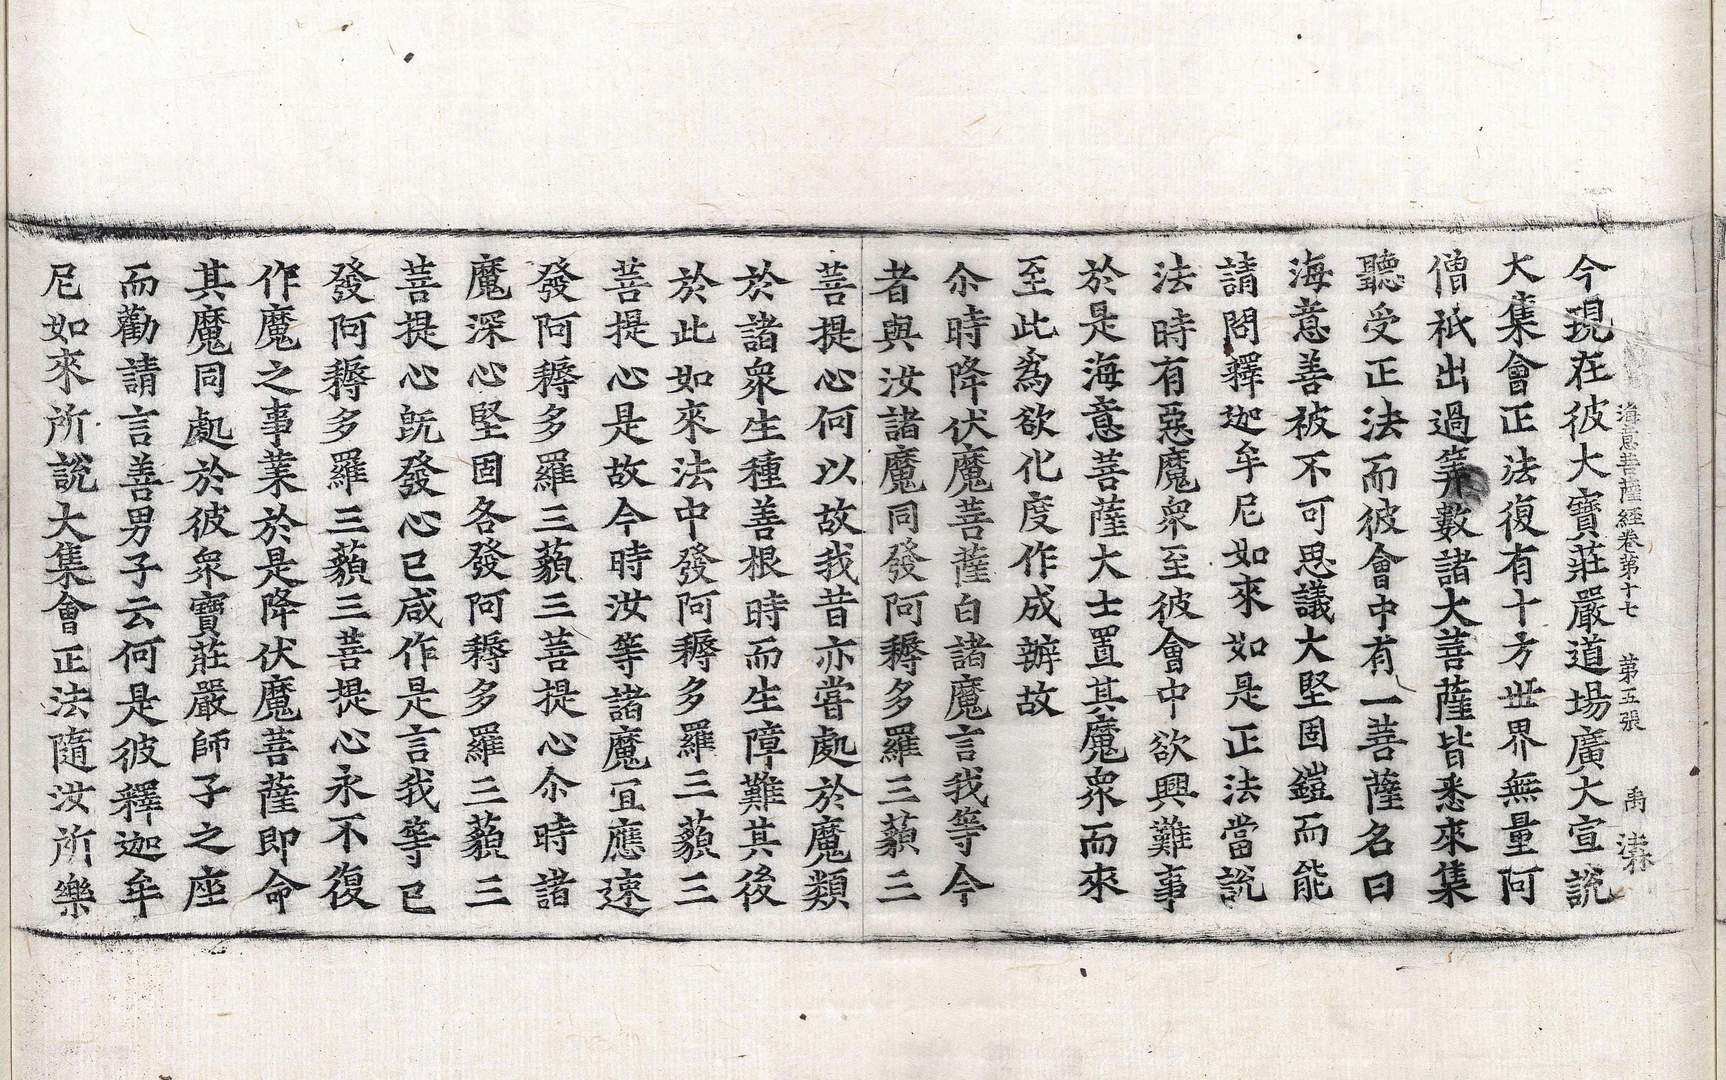 海意菩薩經卷第十七 第五張 禹
今現在彼大寶莊嚴道場廣大宣說
大集會正法復有十方世界無量阿
僧祇出過筭數諸大菩薩皆悉來集
聽受正法而彼會中有一菩薩名曰
海意善被不可思議大堅固鎧而能
請問釋迦牟尼如來如是正法當說
法時有惡魔衆至彼會中欲興難事
於是海意菩薩大士置其魔衆而來
至此為欲化度作成辦故
尒時降伏魔菩薩白諸魔言我等今
者與汝諸魔同發阿耨多羅三藐三
菩提心何以故我昔亦嘗處於魔類
於諸衆生種善根時而生障難其後
於此如來法中發阿耨多羅三藐三
菩提心是故今時汝等諸魔宜應速
發阿耨多羅三藐三菩提心尒時諸
魔深心堅固各發阿耨多羅三藐三
菩提心旣發心已咸作是言我等已
發阿耨多羅三藐三菩提心永不復
作魔之事業於是降伏魔菩薩即命
其魔同處於彼衆寶莊嚴師子之座
而勸請言善男子云何是彼釋迦牟
尼如來所說大集會正法隨汝所樂